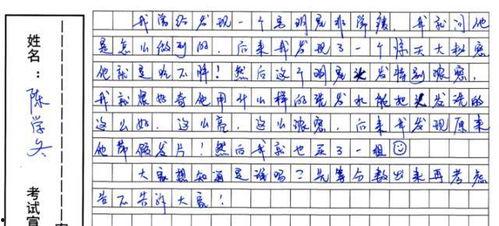 姓名：陈学冬
考试宣
我曾经发现一个是明星非常瘦，我就问他
是怎么做到的，后来我发现了一个惊天大秘密
他就是吃不胖！然后这个明星头发特别浓密，
我就很好奇他用什么样的洗发水能把头发洗的
这么好，这么亮，这么浓密，后来我发现原来
他带假发片！然后我就也买了一组
大家想知道是谁吗？先等分数出来再考虑
告不告诉大家！